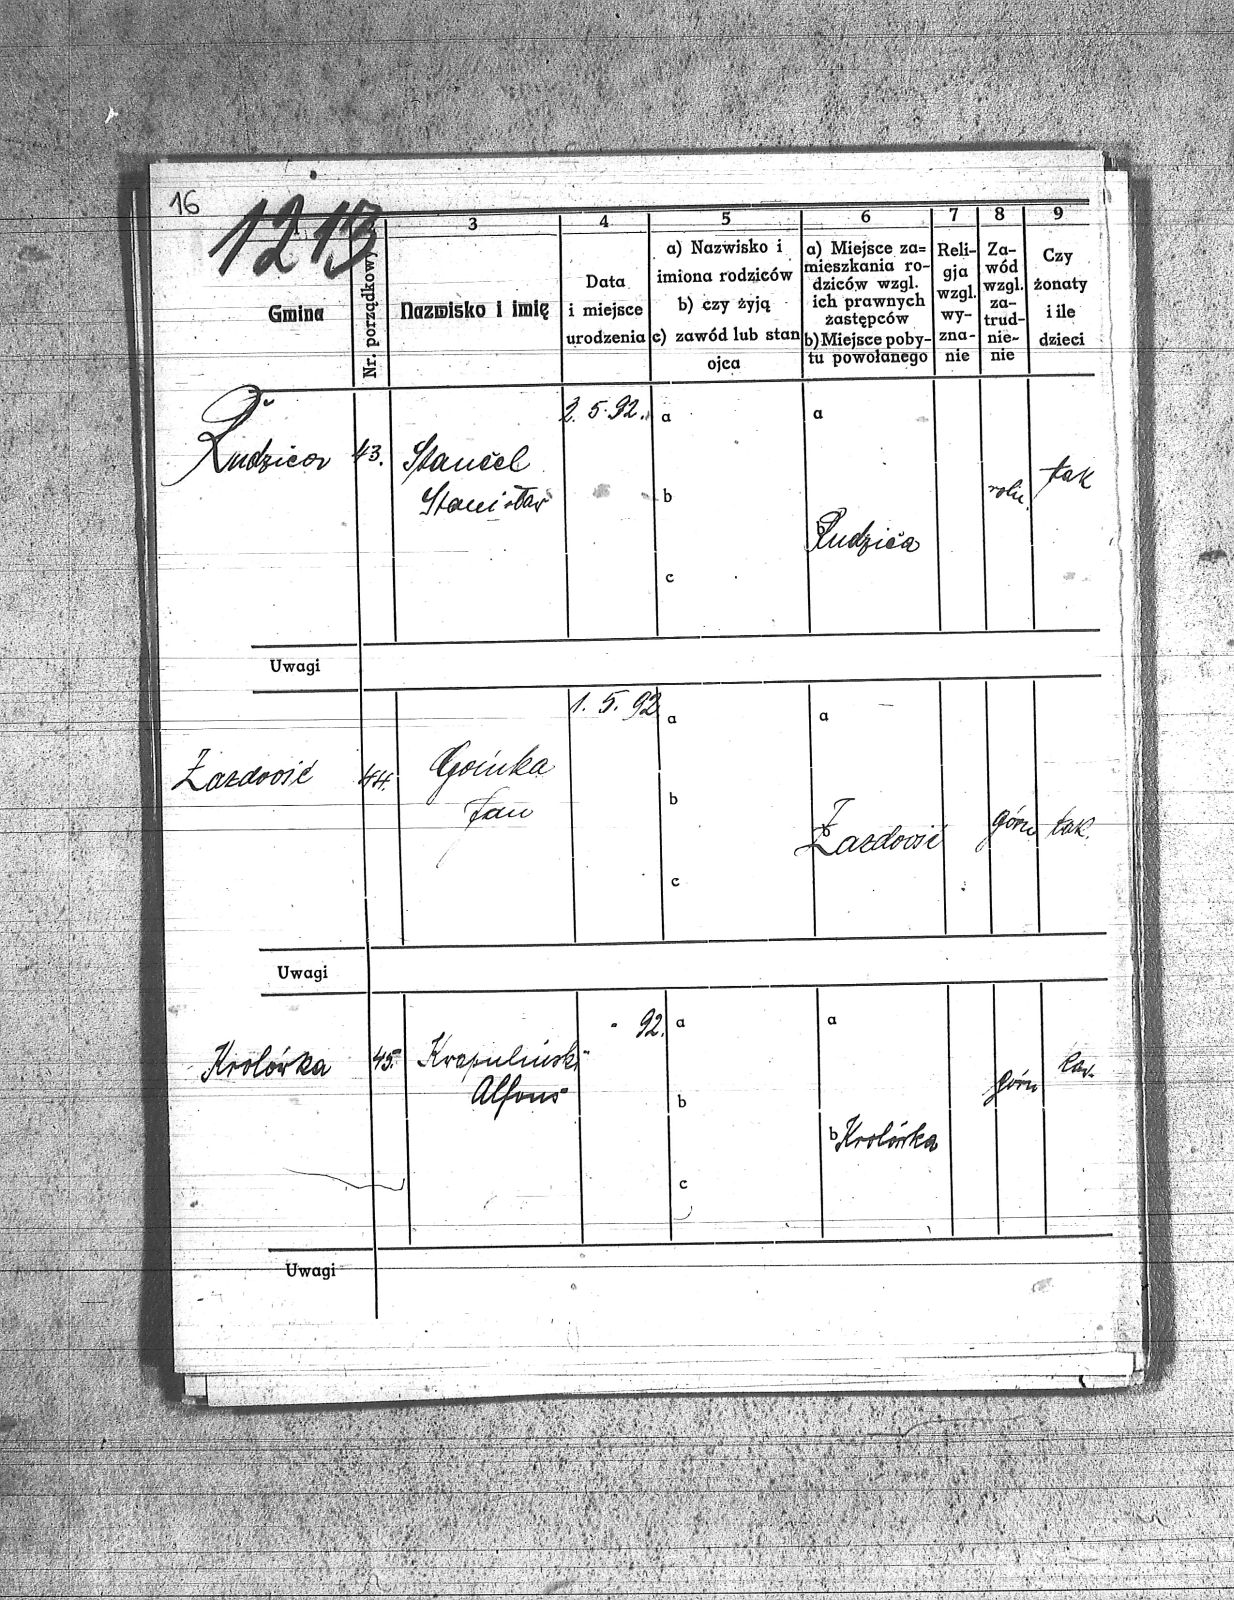 16
1213
3 4 5 6 7 8 9
Gmina
Nr. porządkowy
Nazwisko i imię
Data
i miejsce
urodzenia
a) Nazwisko i
imiona rodziców
b) czy żyją
c) zawód lub stan
ojca
a) Miejsce za=
mieszkania ro-
dziców wzgl.
ich prawnych
zastępców
b) Miejsce poby-
tu powołanego
Reli-
gja
wzgl.
wy-
zna-
nie
Za-
wód
wzgl.
za-
trud-
nie-
nie
Czy
żonaty
i ile
dzieci
Rudzica
43.
Stancel
Stanisław
2. 5. 92.
a
b
c
a
b
Rudzica
roln.
tak
Uwagi
Zazdrość
44.
Goińka
Jan
1. 5. 92
a
b
c
a
b
Zazdrość
górn
tak.
Uwagi
Krolówka
45.
Krepulinski
Alfons
- 92.
a
b
c
a
b Krolówka
górn
Uwagi